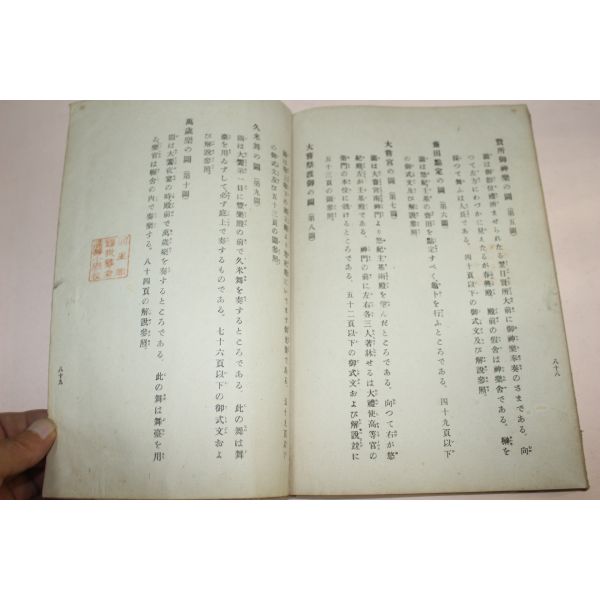 賢所御神樂の圖（第五圖）
圖は御即位禮ませられたる翌日賢所大前に御神樂奉奏のさまである。向
つて左方にわづかに見えたるが春興殿、殿前の假舍は神樂舍である。榊を
採つて舞ふは人長である。四十頁以下の御式文及び解説參照。
齋田點定の圖（第六圖）
圖は悠紀主基の齋田を點定すべく龜卜を行ふところである。四十九頁以下
の御式文及び五十三頁の圖參照。
大嘗宮の圖（第七圖）
圖は大嘗宮南神門より悠紀主基兩殿を望んだところである。向つて右が悠
紀殿左が主基殿である。神門の前に左右各三人著牀せるは大禮使高等官の
衞門の本位に就けるところである。五十二頁以下の御式文および解説竝に
五十三頁の圖參照。
大嘗祭渡御の圖（第八圖）
久米舞の圖（第九圖）
圖は大饗第一日に豐樂殿の前で久米舞を奏するところである。此の舞は舞
臺を用ゐずして必ず庭上で奏するものである。七十六頁以下の御式文およ
び解説參照。
萬歲樂の圖（第十圖）
圖は大饗夜宴の時殿前で萬歲樂を奏するところである。此の舞は舞臺を用
ゐ樂官は幄舍の内で奏樂する。八十四頁の解説參照。
八十八
八十九